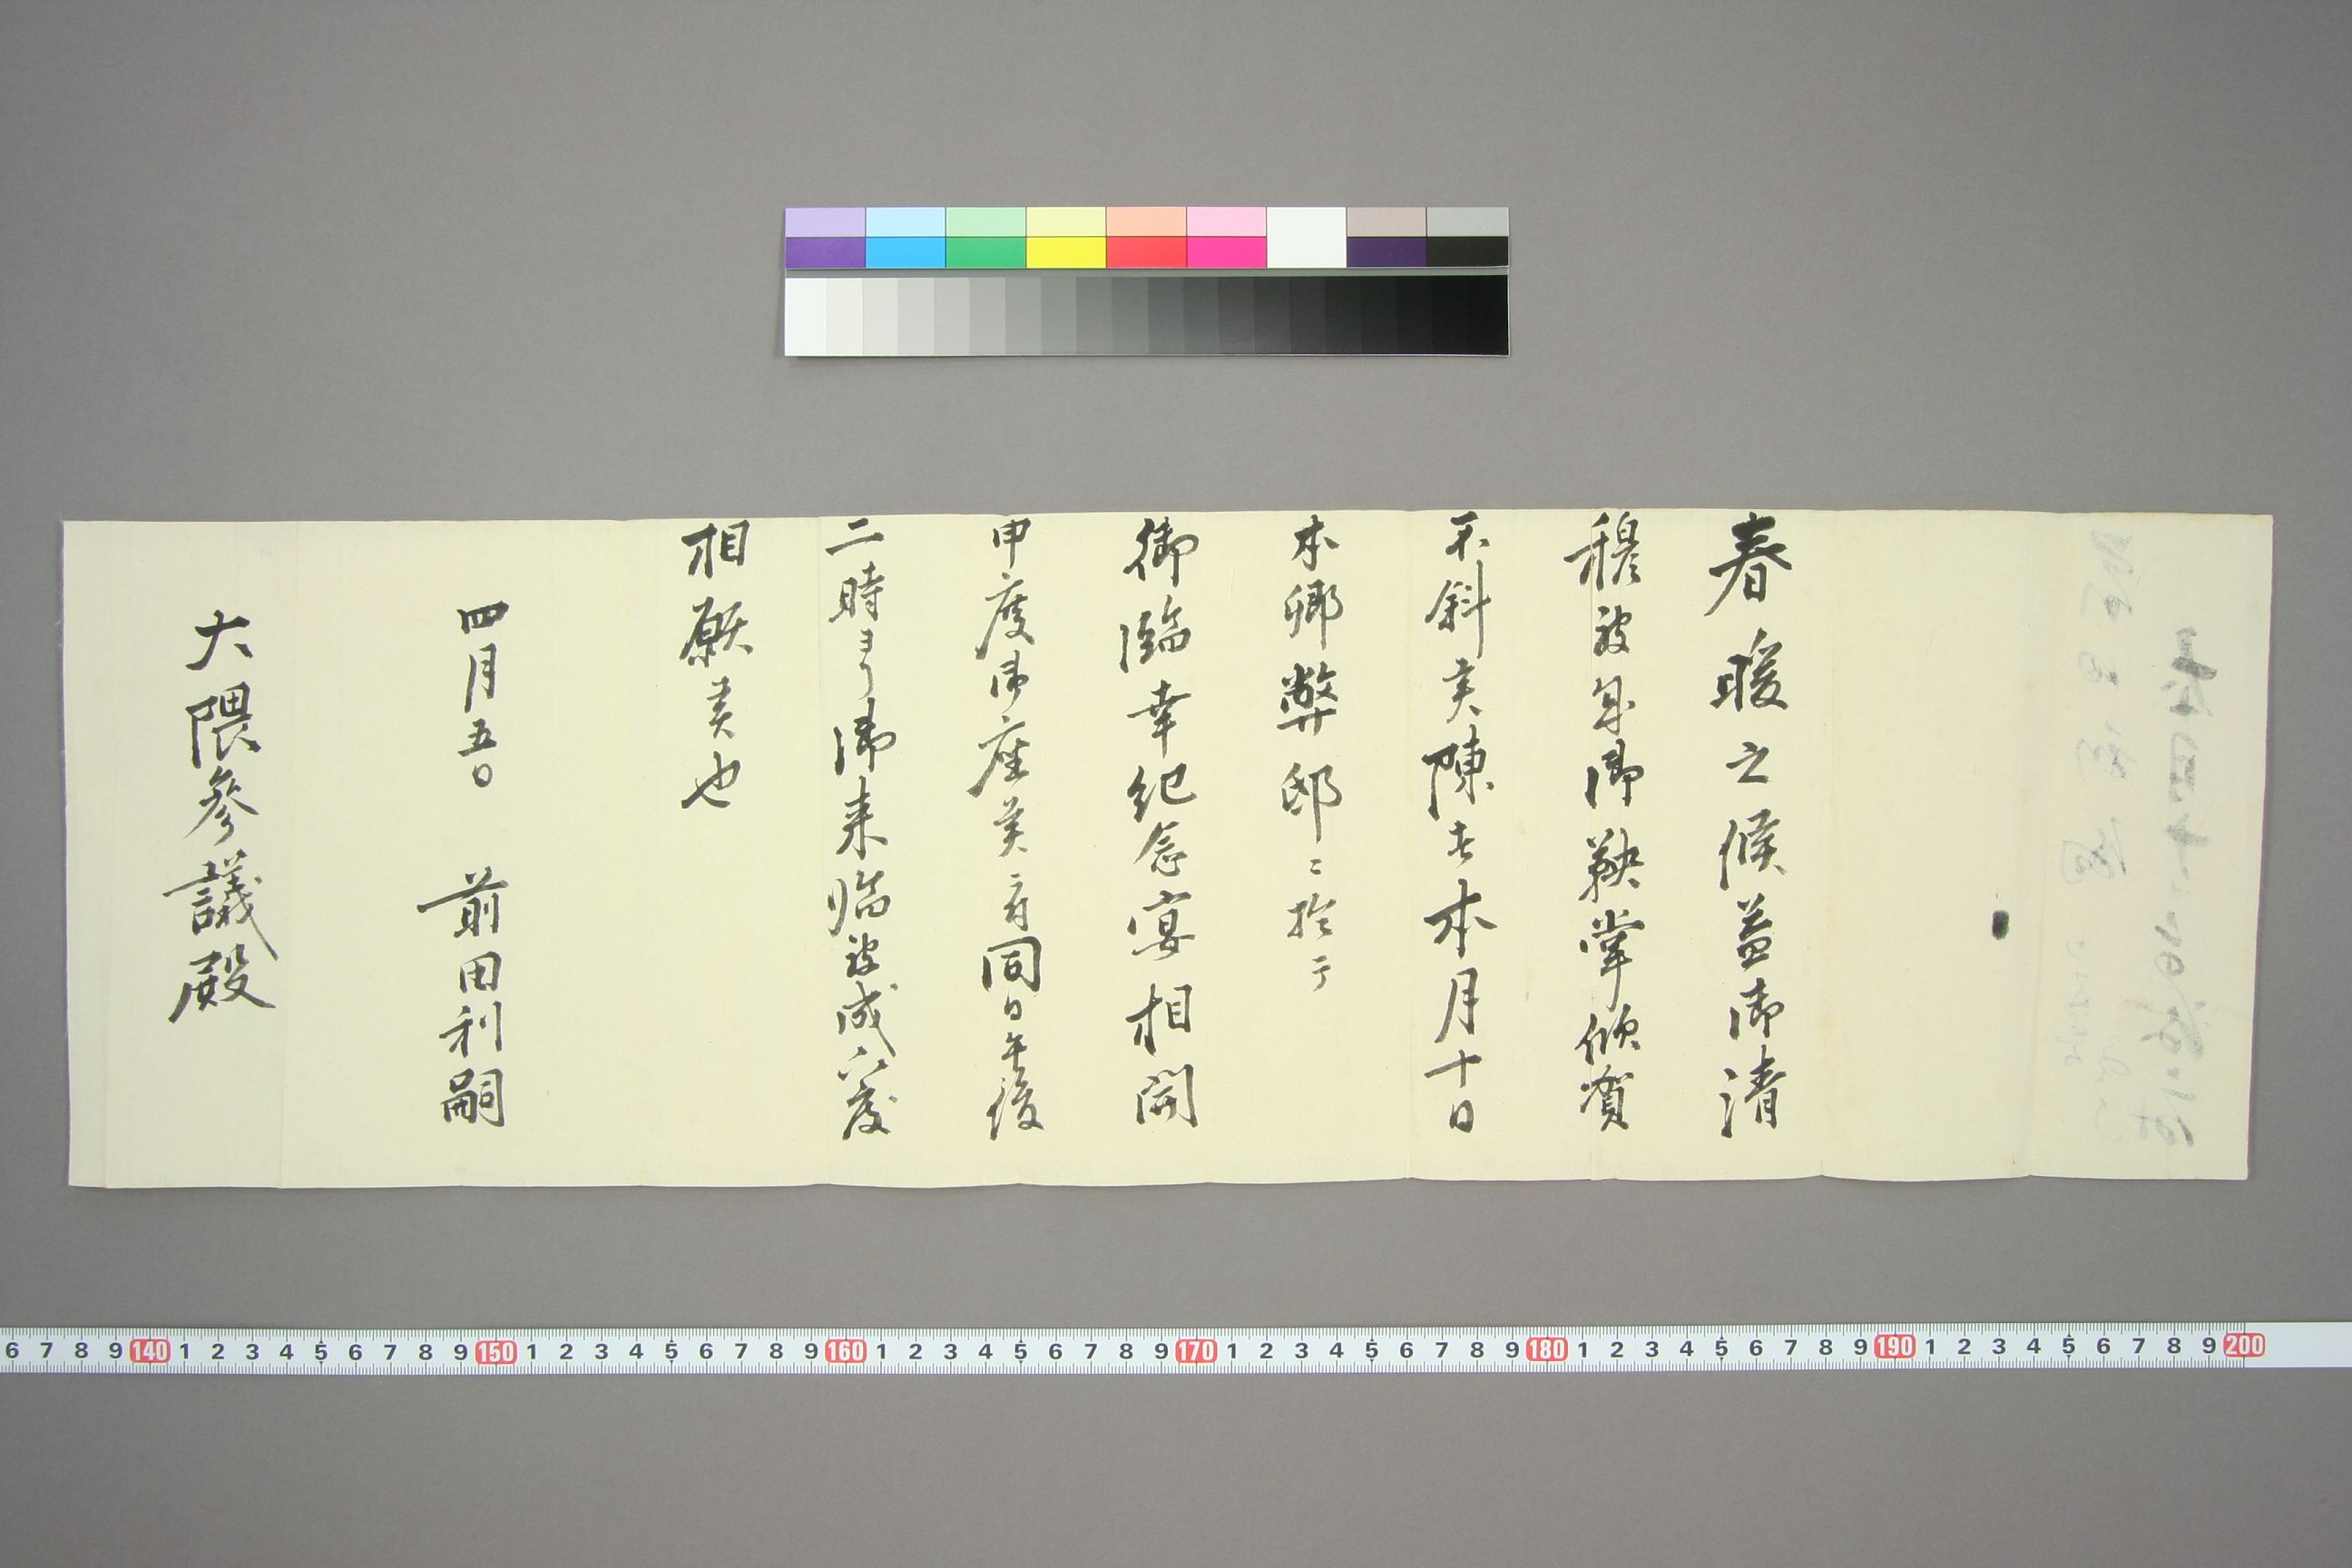 春暖之候益御清
穆被為御鞅掌欣賀
不斜候陳者本月十日
本郷弊邸ニ於テ
御臨幸紀念宴相開
申度御座候ニ付同日午後
二時ヨリ御来臨被成下度
相願候也
四月五日 前田利嗣
大隈参議殿
6 7 8 9 140 1 2 3 4 5 6 7 8 9 150 1 2 3 4 5 6 7 8 9 160 1 2 3 4 5 6 7 8 9 170 1 2 3 4 5 6 7 8 9 180 1 2 3 4 5 6 7 8 9 190 1 2 3 4 5 6 7 8 9 200